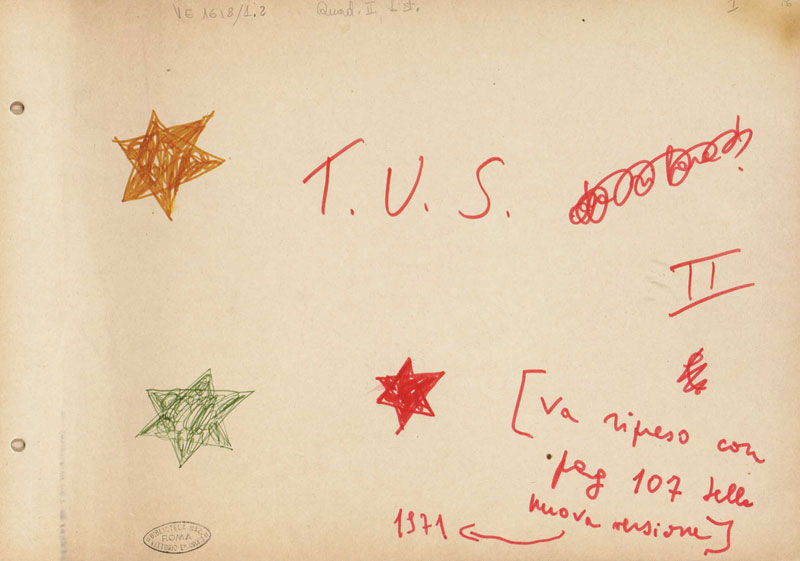 VE 1618/1.2 Quad. II, 1 I.
1
T. U. S.
II
[va ripreso con
pag 107 della
nuova versione]
1971
BIBLIOTECA NAZ.
ROMA
VITTORIO EMANUELE